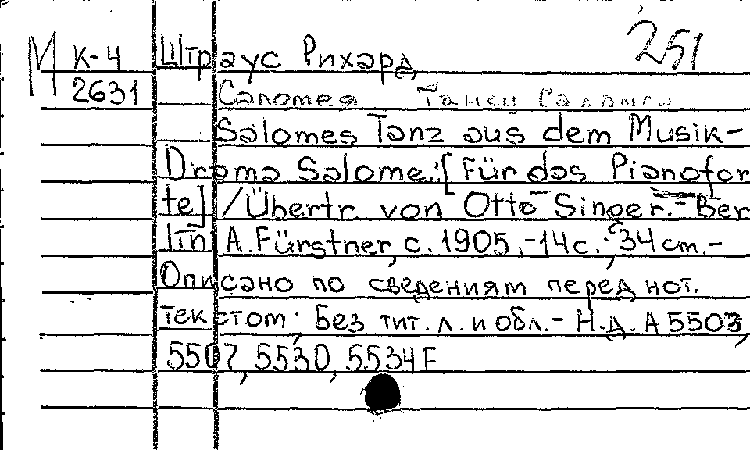 251
М К-4 Штраус Рихард
2631 Саломея Танец Саломеи
Salomes Tanz aus dem Musik-
Drama Salome: [Für das Pianofor
te] / Übertr. von Otto Singer. - Ber
lin, A. Fürstner, c. 1905. - 14 с.; 34 см. -
Описано по сведениям перед нот.
текстом; Без тит. л. и обл. - Н.д. A 5503,
5507, 5530, 5534 F